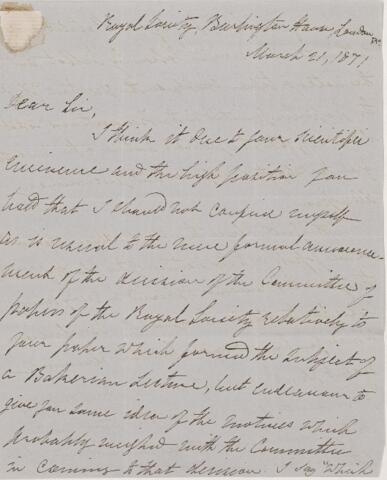 Royal Society Burlington House, London
March 21, 1871
Dear Sir,
I think it due to your scientific
eminence and the high position you
hold that I should not confine myself
as is usual to the mere formal announce-
ment of the decision of the Committee of
papers of the Royal Society relatively to
your paper which formed the subject of
a Bakerian Lecture, but endeavour to
give you some idea of the motives which
probably weighed with the Committee
in coming to that decision. I say "which